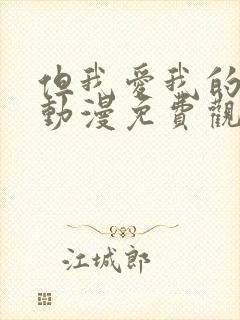 但我愛我的
動漫免費觀
江城郎